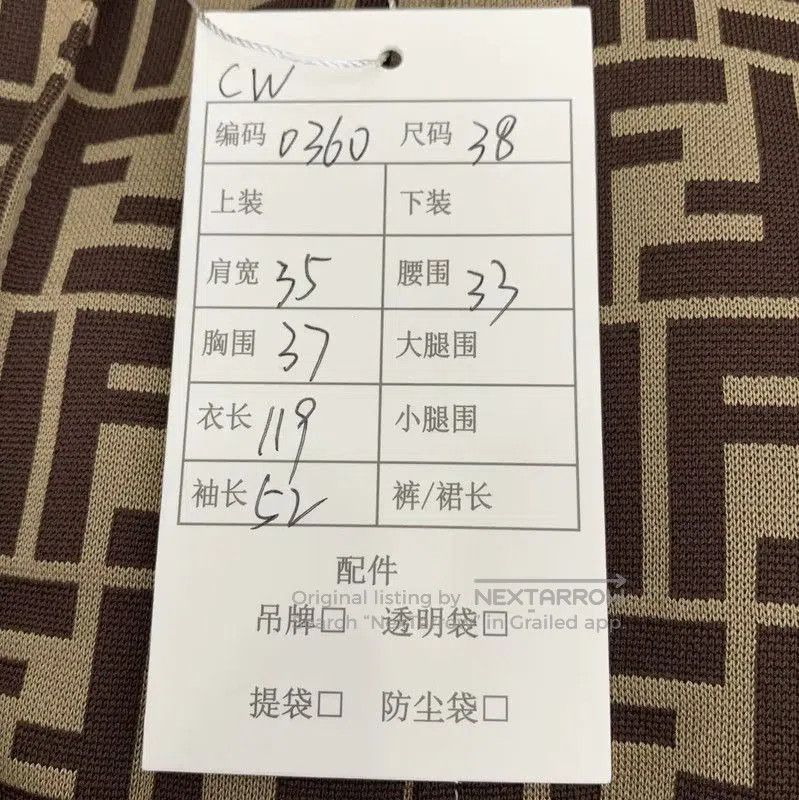 CW
编码 0360 尺码 38
上装 下装
肩宽 35 腰围 33
胸围 37 大腿围
衣长 119 小腿围
袖长 52 裤/裙长
配件
Original listing by NEXTARROW
Search "Nextarrow" in Grailed app
吊牌□ 透明袋□
提袋□ 防尘袋□